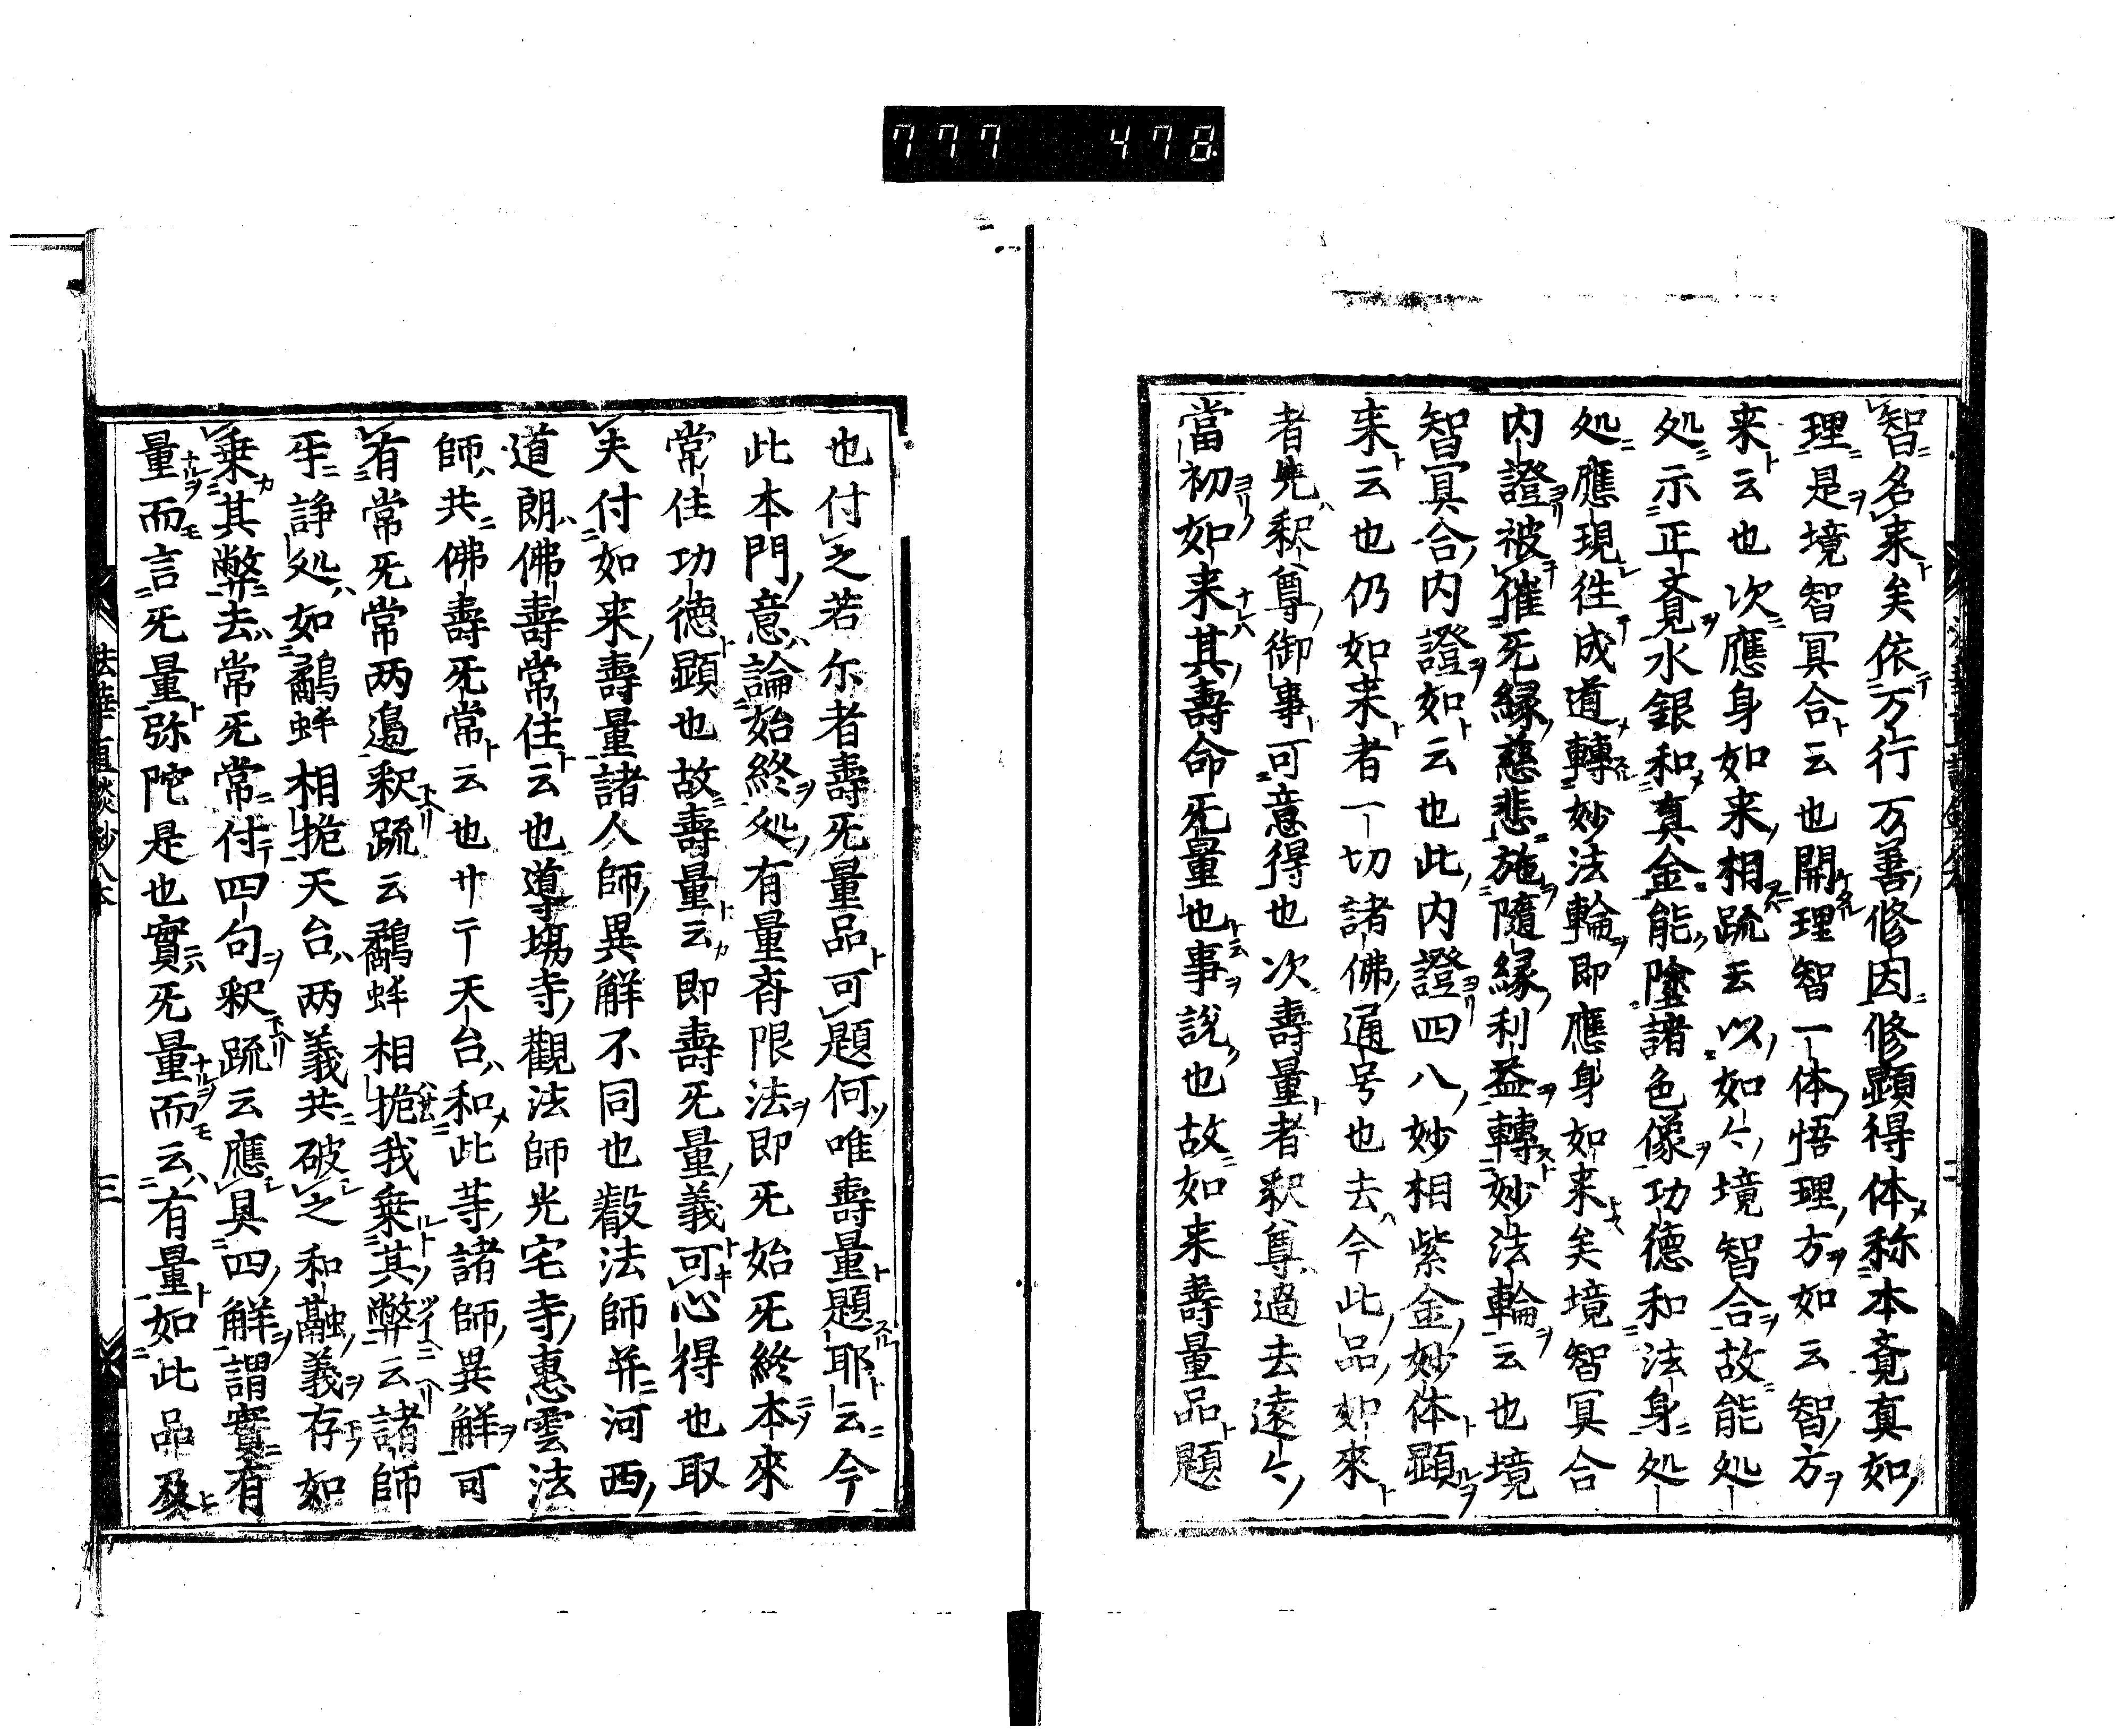 777 478
智名来矣依万行万善修因修顕得体称本覚真如
理是境智冥合云也開理智一体悟理方如云智方
来云也次應身如来相疏云以如〻境智合故能処
処示正覚水銀和真金能塗諸色像功德和法身処
処應現徃成道轉妙法輪即應身如来矣境智冥合
内證被催无縁慈悲施隨縁利益轉妙法輪云也境
智冥合内證如云也此内證四八妙相紫金妙体顕
来云也仍如来者一切諸佛通号也去今此品如來
者先釈尊御事可意得也次壽量者釈尊過去遠〻
當初如来其壽命无量也事説也故如来壽量品題
也付之若尓者壽无量品可題何唯壽量題耶云今
此本門意論始終処有量斉限法即无始无終本來
常住功徳顕也故壽量云即壽无量義可心得也取
夫付如来壽量諸人師異解不同也叡法師并河西
道朗佛壽常住云也導場寺觀法師光宅寺惠雲法
師共佛壽无常云也廿二一天台和此等諸師異解可
有常无常两邉釈疏云鷸蚌相扼我乗其弊云諸師
乎諍処如鷸蚌相扼天台两義共破之和融義存如
乗其弊去常无常付四句釈疏云應具四解謂實有
量而言无量弥陀是也實无量而云有量如此品及
法華直談鈔八本
三